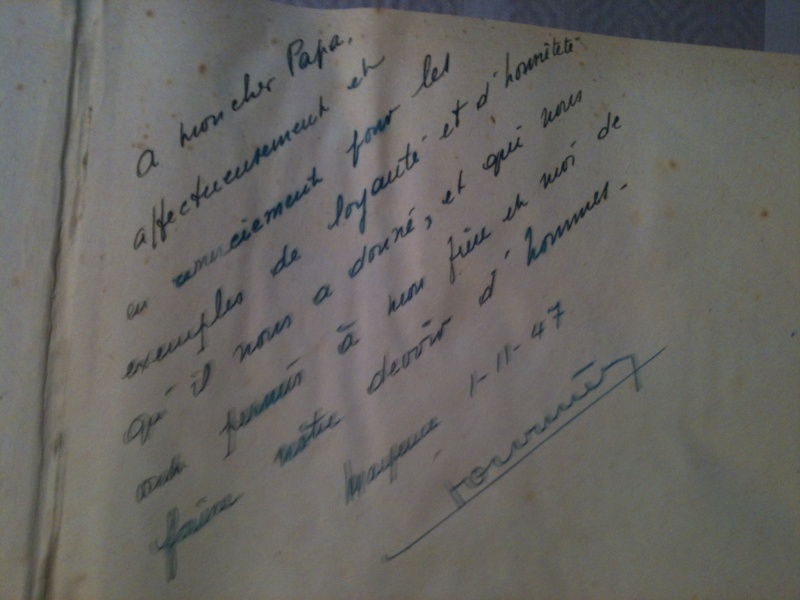 A mon cher Papa,
affectueusement et
en remerciement pour les
exemples de loyauté et d'honnêteté
qu'il nous a donné, et qui nous
ont permis à mon frère et moi de
faire notre devoir d'hommes.
1-11-47